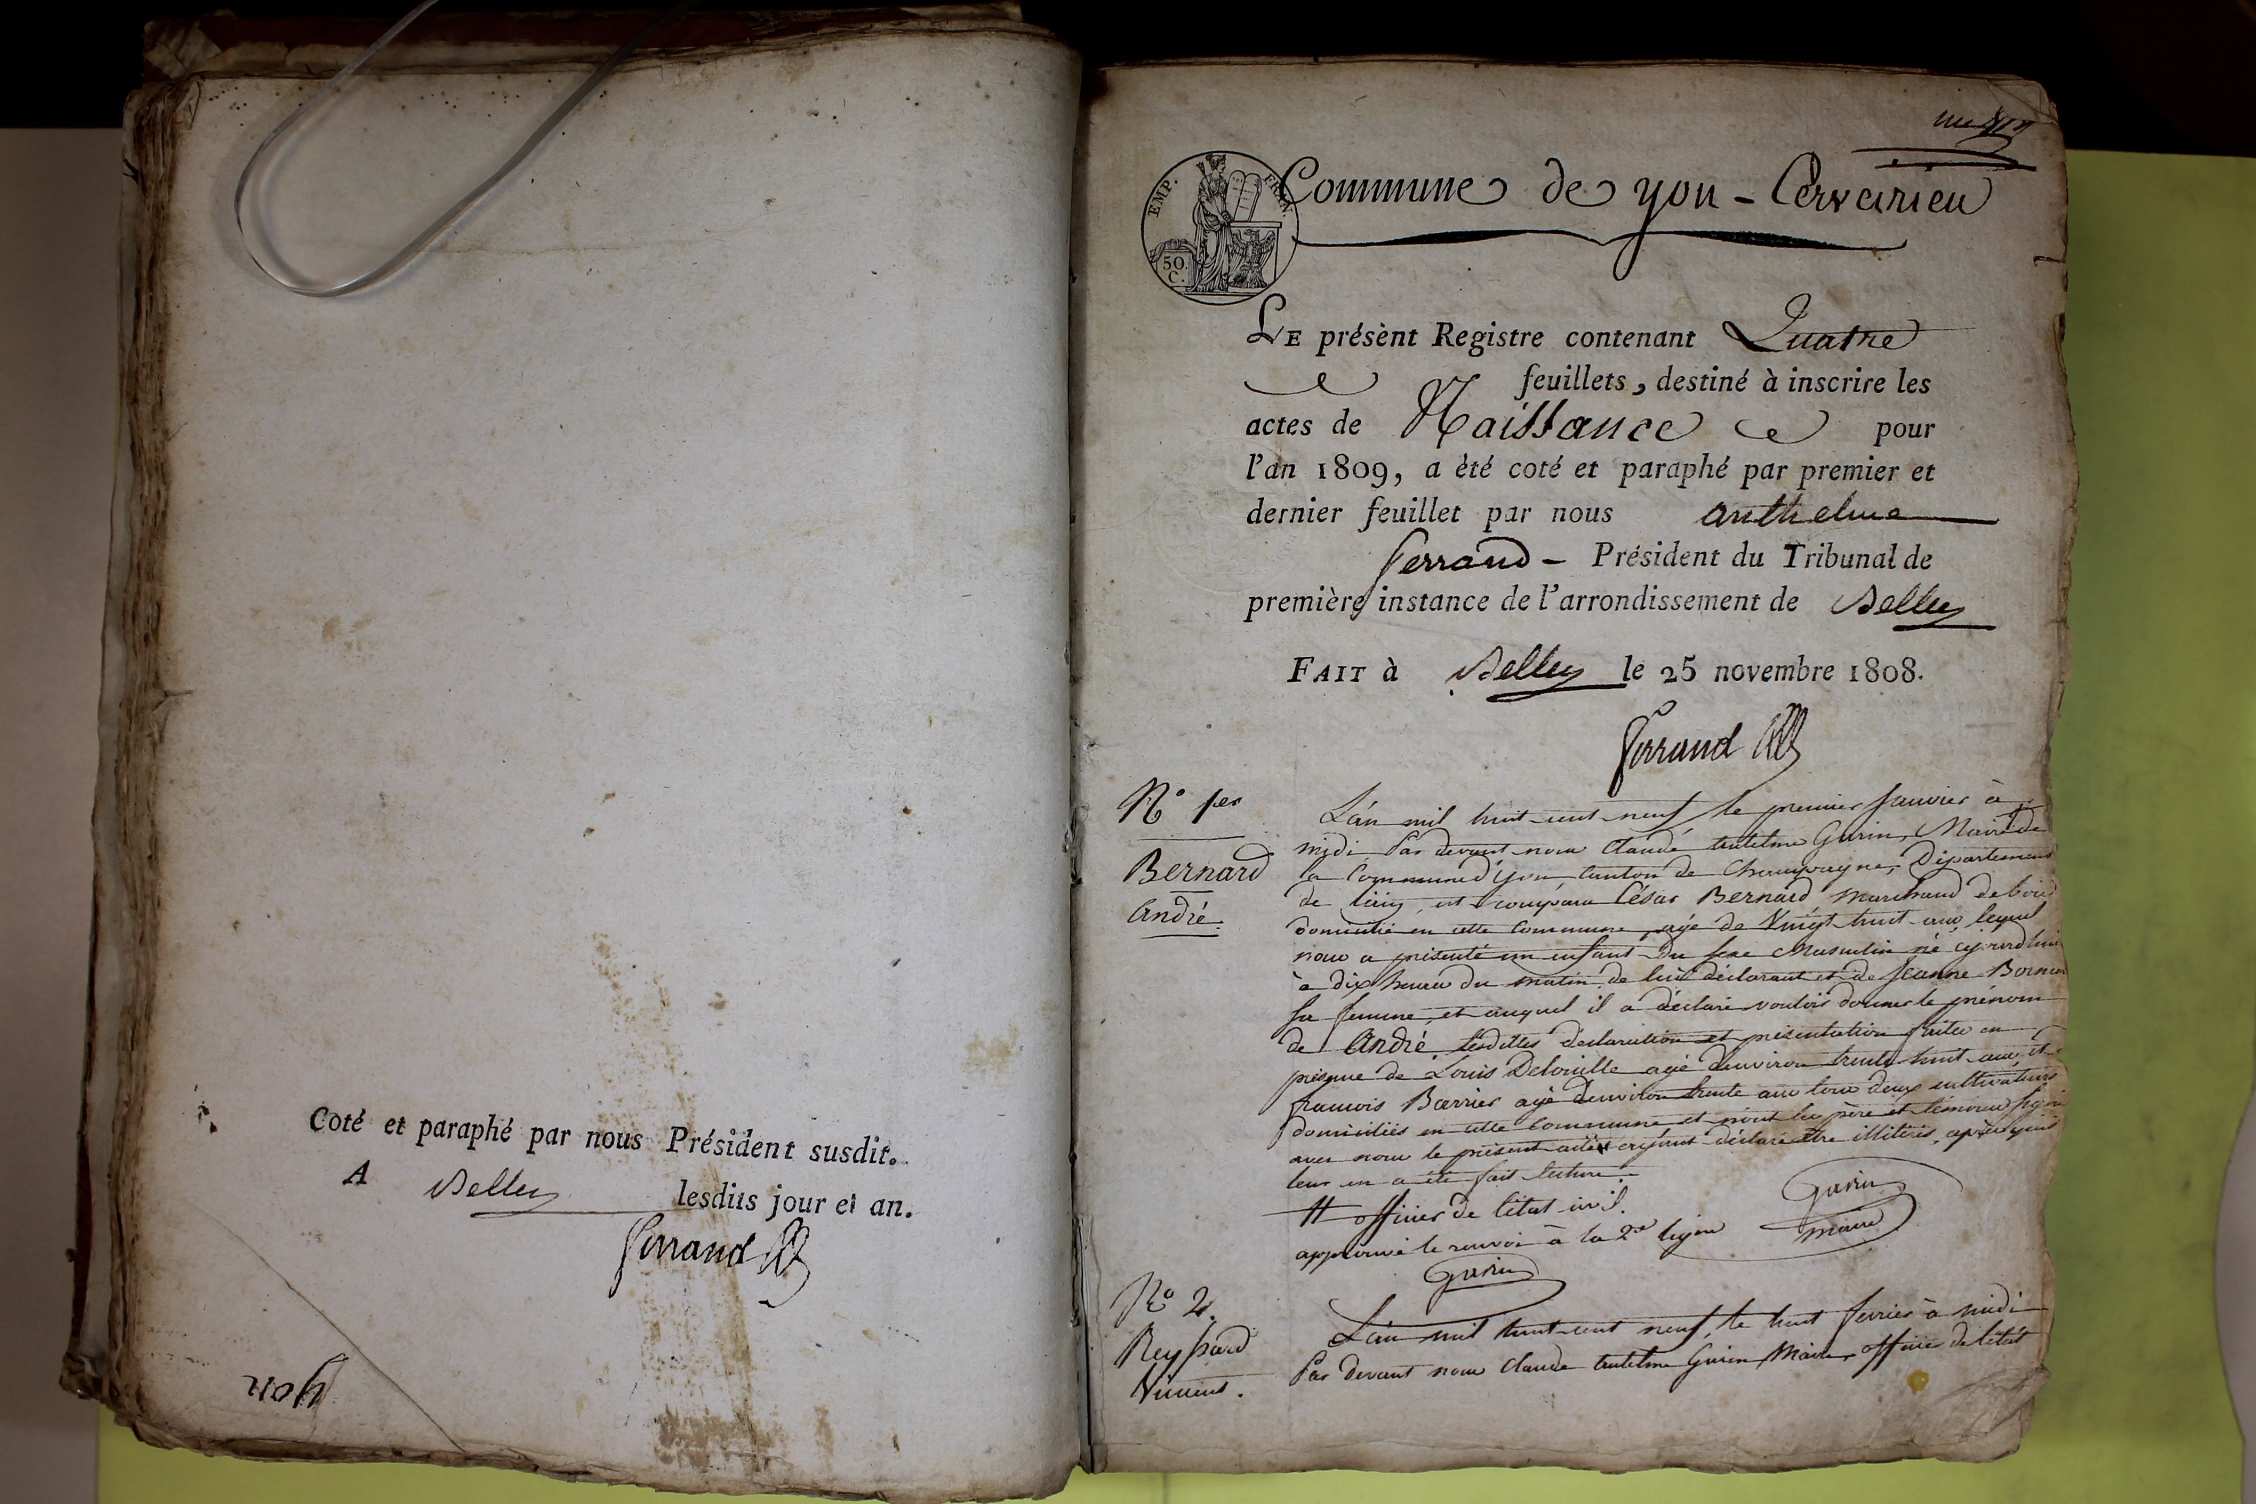 Coté et paraphé par nous Président susdit.
A Belley lesdits jour et an.
Ferrand
yon
Commune de yon - Cerveirieu
EMP. FRAN.
50.
C.
LE présènt Registre contenant Quatre
feuillets, destiné à inscrire les
actes de Naissance pour
l'an 1809, a èté coté et paraphé par premier et
dernier feuillet par nous anthelme
ferrand - Président du Tribunal de
première instance de l'arrondissement de Belley
FAIT à Belley le 25 novembre 1808.
Ferrand
N.° 1er
Bernard
André.
L'an mil huit cent neuf le premier Janvier à
midi Par devant nous Claude Antelme Gurin, Maire de
la Commune d'yon, Canton de Champagne, Département
de l'ain, est comparu César Bernard, marchand de bois
domicilié en cette Commune, agé de Vingt huit ans lequel
nous a présenté un enfant du sexe Masculin né cejourd'hui
à dix heures du matin, de lui déclarant et de Jeanne
sa femme, et auquel il a déclaré vouloir donner le prénom
de André. lesdittes déclaration et présentation faites en
présence de Louis agé d'environ trente huit ans, et
francois Barrier agé d'environ trente ans tous deux cultivateurs
domiciliés en cette Commune et n'ont les père et témoins signé
avec nous le présent acte ayant déclaré être illitérés, après qu'il
leur en a été fait lecture.
# officier de l'état civil.
approuvé le renvoi à la 2e ligne
Gurin
maire
Gurin
N° 2.
Reyssard
Vincent.
L'an mil huit cent neuf, le huit fevrier à midi
Par devant nous Claude Antelme Gurin, Maire, officier de l'état